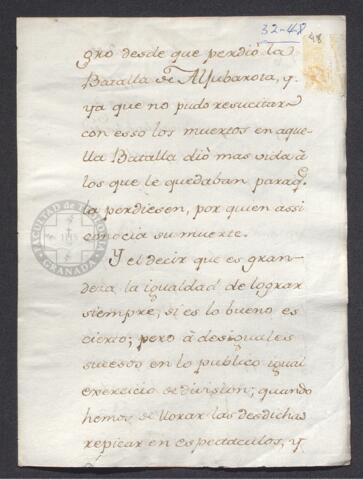 32-48
48
gro desde que perdiò la
Batalla de Aljubarota, y
ya que no pudo resucitar
con esso los muertos en aque-
lla Batalla diò mas vida à
los que le quedaban paraq.
la perdiesen, por quien assi
conocia su muerte.
Y el decir que es gran-
deza la igualdad de lograr
siempre, si es lo bueno es
cierto; pero à desiguales
sucesos en lo publico igual
exercicio de division; quando
hemos de llorar las desdichas
repicar en espectaculos, y
FACULTAD de TEOLOGIA
GRANADA